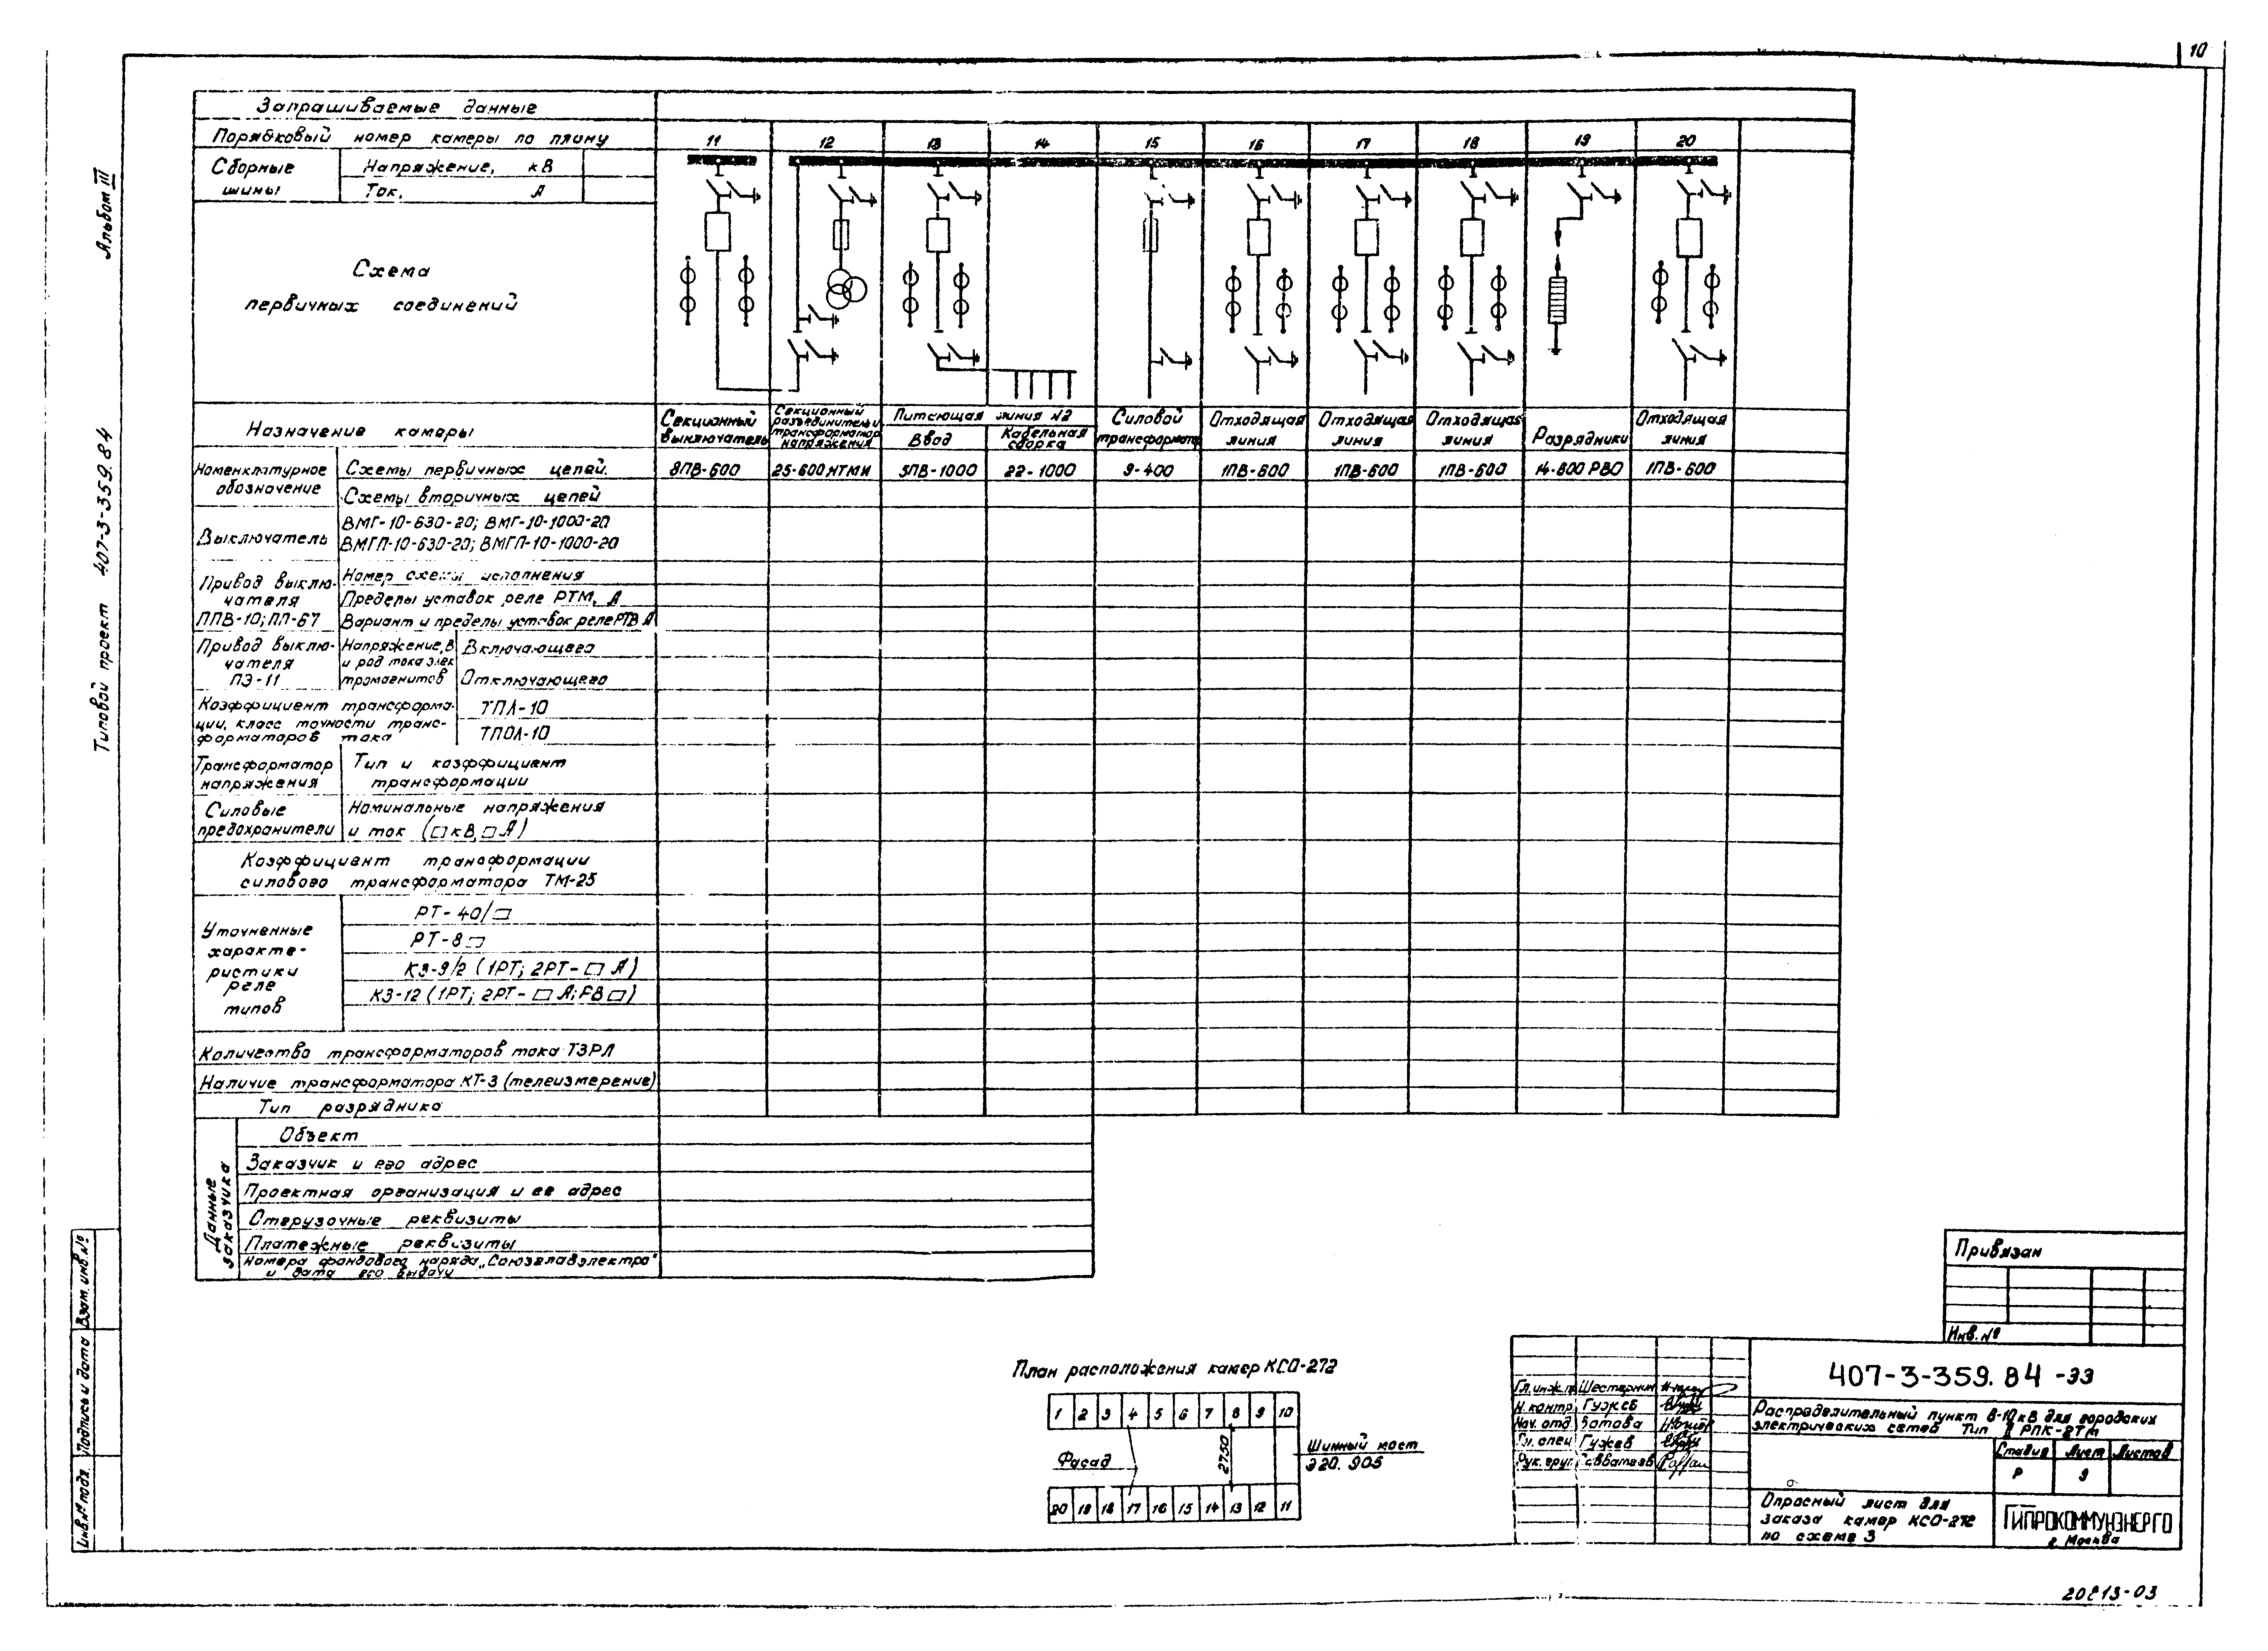 10
Альбом III
Типовой проект 407-3-359.84
Запрашиваемые данные
Порядковый номер камеры по плану
11 12 13 14 15 16 17 18 19 20
Сборные шины
Напряжение, кВ
Ток, А
Схема
первичных соединений
Назначение камеры
Секционный выключатель
Секционный разъединитель и трансформатор напряжения
Питающая линия №2
Ввод
Кабельная сборка
Силовой трансформатор
Отходящая линия
Отходящая линия
Отходящая линия
Разрядники
Отходящая линия
Номенклатурное обозначение
Схемы первичных цепей.
8ПВ-600 25-600 НТМИ 5ПВ-1000 22-1000 9-400 1ПВ-600 1ПВ-600 1ПВ-600 14-600 РВО 1ПВ-600
Схемы вторичных цепей
Выключатель
ВМГ-10-630-20; ВМГ-10-1000-20
ВМГП-10-630-20; ВМГП-10-1000-20
Привод выклю-
чателя
ППВ-10; ПП-67
Номер схемы исполнения
Пределы уставок реле РТМ, А
Вариант и пределы уставок реле РТВ А
Привод выклю-
чателя
ПЭ-11
Напряжение, В
и род тока элек
тромагнитов
Включающего
Отключающего
Коэффициент трансформа-
ции, класс точности транс-
форматоров тока
ТПЛ-10
ТПОЛ-10
Трансформатор
напряжения
Тип и коэффициент
трансформации
Силовые
предохранители
Номинальные напряжения
и ток (□кВ, □А)
Коэффициент трансформации
силового трансформатора ТМ-25
Уточненные
характе-
ристики
реле
типов
РТ-40/□
РТ-8□
КЗ-9/2 (1РТ; 2РТ-□ А)
КЗ-12 (1РТ; 2РТ-□ А; РВ□)
Количество трансформаторов тока ТЗРЛ
Наличие трансформатора КТ-3 (телеизмерение)
Тип разрядника
Данные
заказчика
Объект
Заказчик и его адрес
Проектная организация и ее адрес
Отгрузочные реквизиты
Платежные реквизиты
Номера фондового наряда „Союзглавэлектро"
и дата его выдачи
План расположения камер КСО-272
1 2 3 4 5 6 7 8 9 10
Фасад
2750
Шинный мост
Э20.905
20 19 18 17 16 15 14 13 12 11
Привязан
Инв. №
Гл. инж. п Шестернин
Н. контр. Гужев
Нач. отд. Зотова
Гл. спец Гужев
Рук. груп.
407-3-359.84 -ЭЭ
Распределительный пункт 6-10кВ для городских
электрических сетей Тип II РПК-2ТМ
Стадия Лист Листов
Р 9
Опросный лист для
заказа камер КСО-272
по схеме 3
ГИПРОКОММУНЭНЕРГО
г. Москва
Инв.№ подл. Подпись и дата Взам. инв.№
20813-03